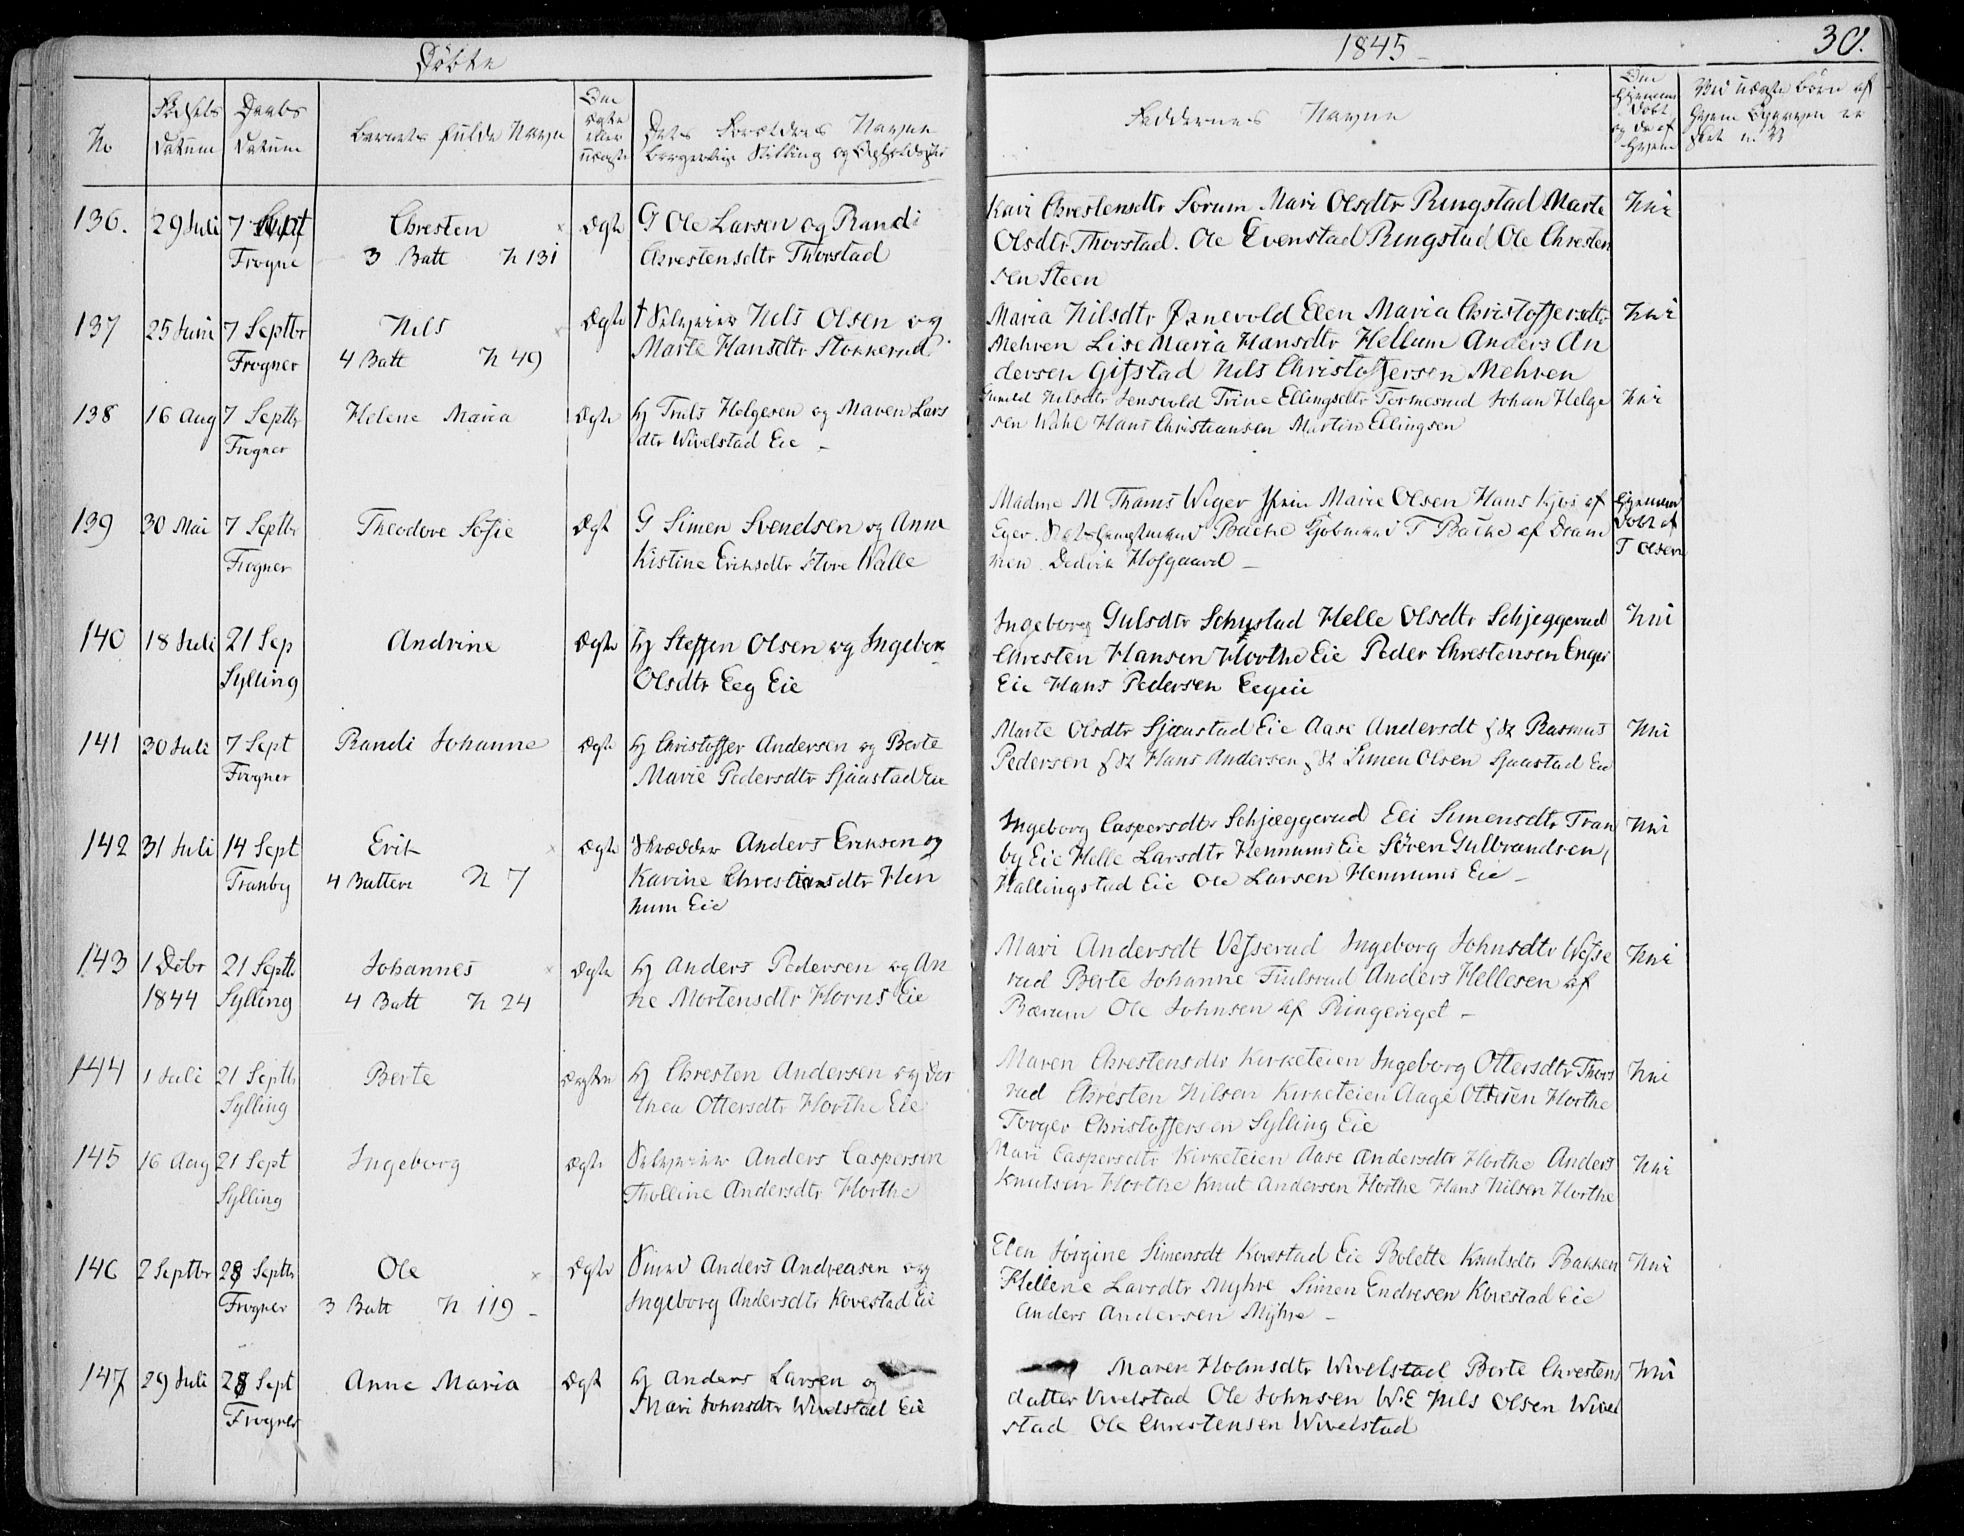 Døbte
1845
30.
No
Fødsels Datum
Daabs Datum
Barnets fulde Navn
Om ægte eller uægte
Dets Forældres Navne
borgerlige Stilling og Opholdssted
Faddernes Navne
Om hjemmedøbt og da af hvem
136. 29 Juli 7 Sept Chresten Ægte G Ole Larsen og Randi Kari Chrestensdtr Sørum Mari Olsdtr Ringstad Marte Nei
Frogner 3 Batt N 131 Chrestensdtr Thorstad Olsdtr Thorstad. Ole Evenstad Ringstad Ole Chresten
sen Steen
137 25 Juni 7 Septbr Nils Ægte † Selveier Nils Olsen og Maria Nilsdtr Ørnevold Elen Maria Christoffersdtr Nei
Frogner 4 Batt N 49 Marte Hansdtr Stokkerud Mehren Lise Maria Hansdtr Hellum Anders An
dersen Gifstad Nils Christoffersen Mehren
138 16 Aug 7 Septbr Helene Maria Ægte Hj Truls Helgesen og Maren Lars Gunild Nilsdtr Jensvold Trine Ellingsdtr Tormesrud Johan Helge Nei
Frogner dtr Wivelstad Eie - sen Wahl Hans Christiansen Martin Ellingsen
139 30 Mai 7 Septbr Theodore Sofie Ægt G Simen Svendsen og Anne Madme M Thams Wiger Marie Olsen Hans Kjøs af Hjemme
Frogner Kistine Eriksdtr Store Walle Eger. Bache Kjøbmand T Bache af Dram døbt af
men. Dedrik Hofgaard - T Olsen
140 18 Juli 21 Sep Andrine Ægte Hj Steffen Olsen og Ingebor Ingeborg Gulsdtr Schustad Helle Olsdtr Schjeggerud Nei
Sylling Olsdtr Eeg Eie Chresten Hansen Horthe Eie Peder Chrestensen Enger
Eie Hans Pedersen Eegeie
141 30 Juli 7 Sept Randi Johanne Ægte Hj Christoffer Andersen og Berte Marte Olsdtr Sjaastad Eie Aase Andersdt Rasmus Nei
Frogner Marie Pedersdtr Sjaastad Eie Pedersen Hans Andersen Simen Olsen Sjaastad Eie
142 31 Juli 14 Sept Erik Ægte Skrædder Anders Eriksen og Ingeborg Caspersdtr Schjæggerud Eli Simensdtr Tran Nei
Tranby 4 Batteri N 7 Karine Chrestiansdtr Hen by Eie Helle Larsdtr Hennums Eie Søren Gulbrandsen
num Eie Hallingstad Eie Ole Larsen Hennums Eie -
143 1 Debr 21 Septb Johannes Ægte Hj Anders Pedersen og An Mari Andersdt Vefserud Ingeborg Johnsdtr Wefse Nei
1844 Sylling 4 Batt N 24 ne Mortensdtr Horns Eie rud Berte Johanne Fiulsrud Anders Hellesen af
Bærum Ole Johnsen af Ringeriget -
144 1 Juli 21 Septb Berte Ægten Hj Chresten Andersen og Dor Maren Chrestensdtr Kirketeien Ingeborg Ottersdtr Thors Nei
Sylling thea Ottersdtr Horthe Eie rud Chresten Nilsen Kirketeien Aage Ottersen Horthe
Torger Christoffersen Sylling Eie
145 16 Aug 21 Sept Ingeborg Ægte Selveier Anders Caspersen Mari Caspersdtr Kirketeien Aase Andersdtr Horthe Anders Nei
Sylling Tholline Andersdtr Horthe Knutsen Horthe Knut Andersen Horthe Hans Nilsen Horthe
146 2 Septbr 28 Septb Ole Ægte Smed Anders Andreasen og Elen Jørgine Simensdt Kovestad Eie Bolette Knutsdtr Bakken Nei
Frogner 3 Batt N 119 - Ingeborg Andersdtr Kovestad Eie Hellene Larsdtr Myhre Simen Endresen Kovestad Eie
Anders Andersen Myhre -
147 29 Juli 28 Sept Anne Maria Ægt Hj Anders Larsen og Maren Holmsdtr Wivelstad Berte Chrestens Nei
Frogner Mari Johnsdtr Wivelsted Eie datter Vivelstad Ole Johnsen W:E Nils Olsen Wivel
stad Ole Chrestensen Wivelstad